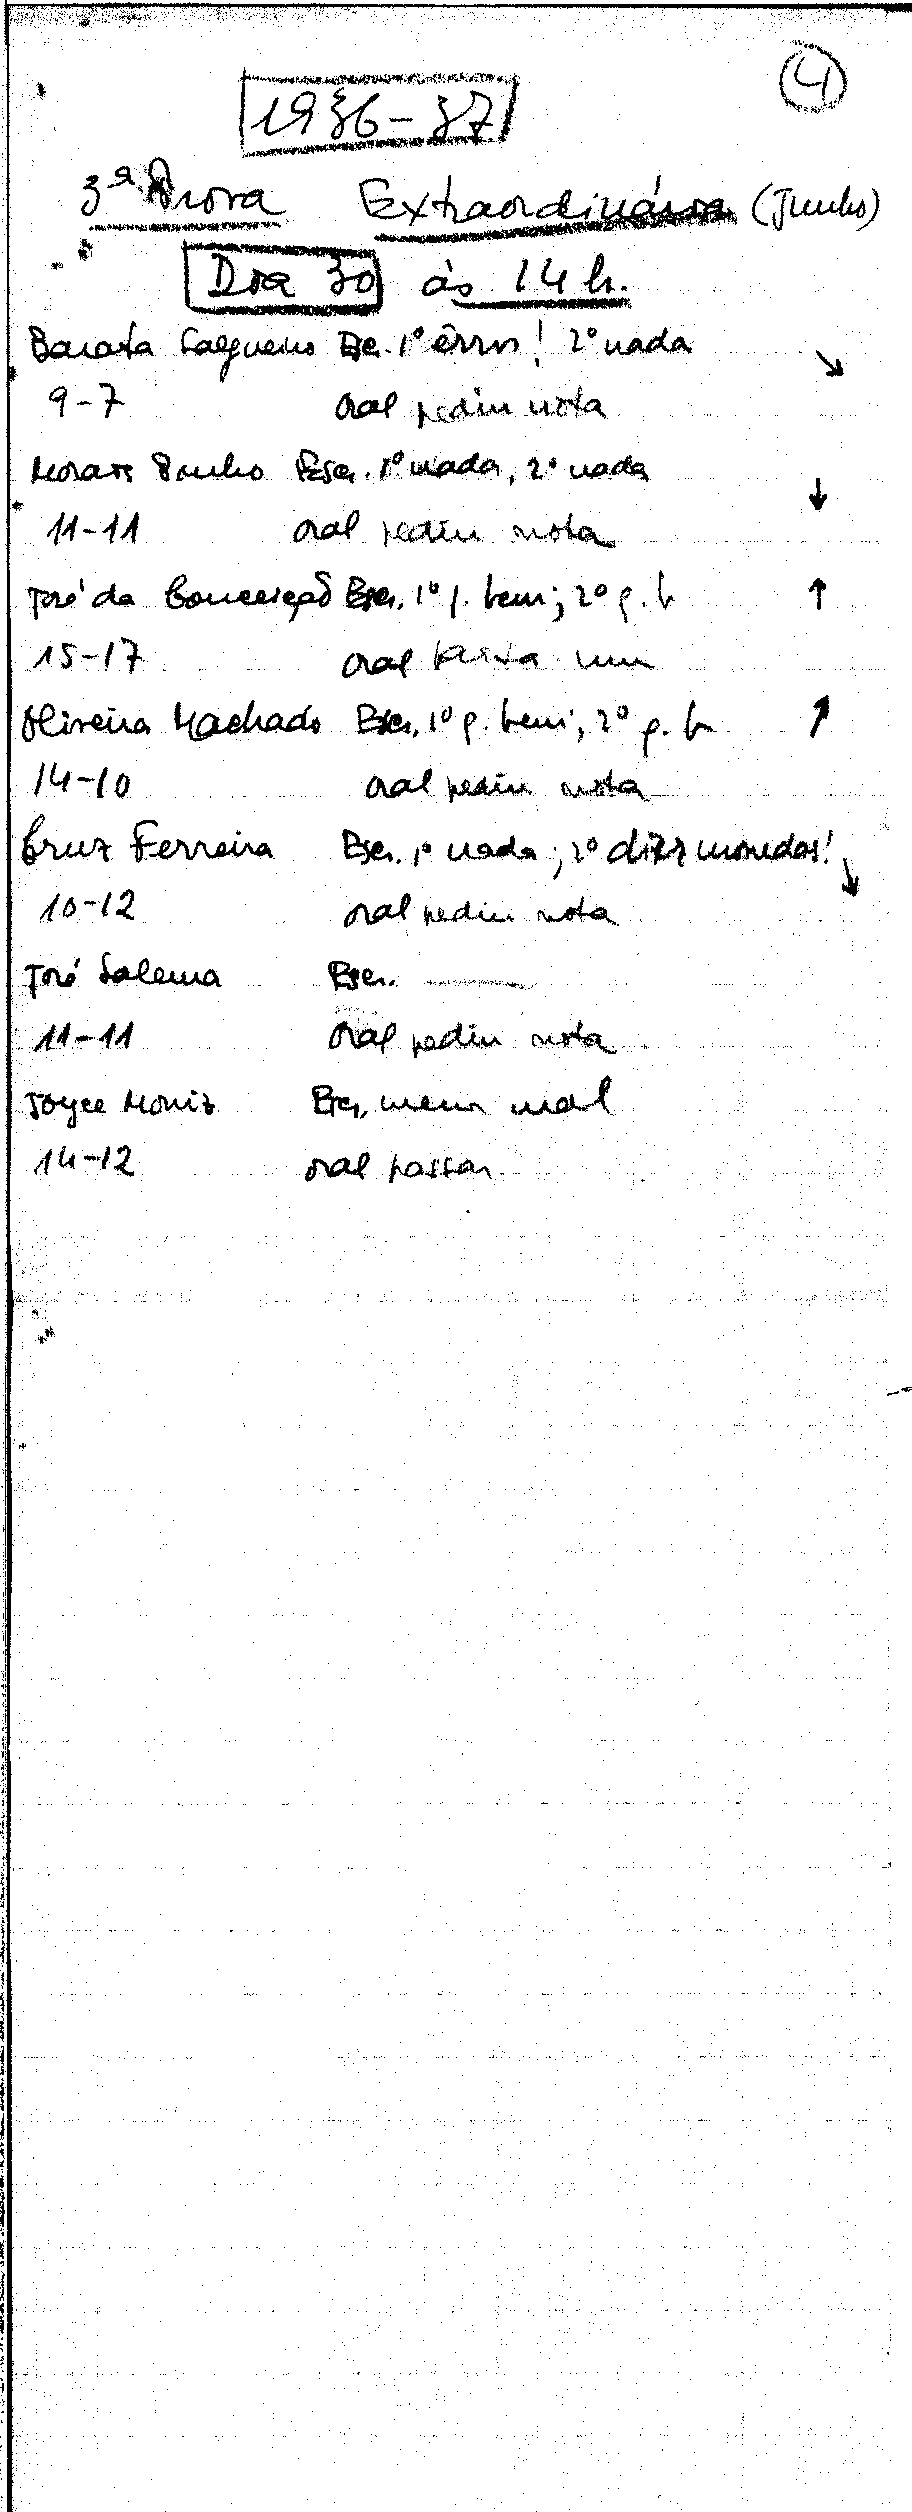 4
1936-37
3ª Prova Extraordinária (Junho)
Dia 30 às 14 h.
Barata Salgueiro Esc. 1º êrros! 2º nada ↘
9-7 oral pediu nota
Morais Esc. 1º nada, 2º nada ↓
11-11 oral pediu nota
José da Conceição Esc. 1º p. bem; 2º p. b ↑
15-17 oral
Oliveira Machado Esc. 1º p. bem; 2º p. b ↗
14-10 oral pediu nota
Cruz Ferreira Esc. 1º nada; 2º diz ↘
10-12 oral pediu nota
José Salema Esc. ——
11-11 oral pediu nota
Joyce Moniz Esc. menos mal
14-12 oral passar